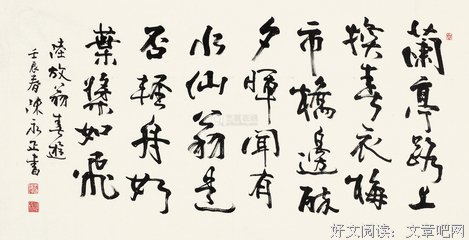 蘭亭路上
換春衣梅
市橋邊醉
夕暉聞有
水仙翁是
否輕舟如
葉槳如飛
陸放翁春遊
壬辰春陳永正書
好文阅读：文章吧网